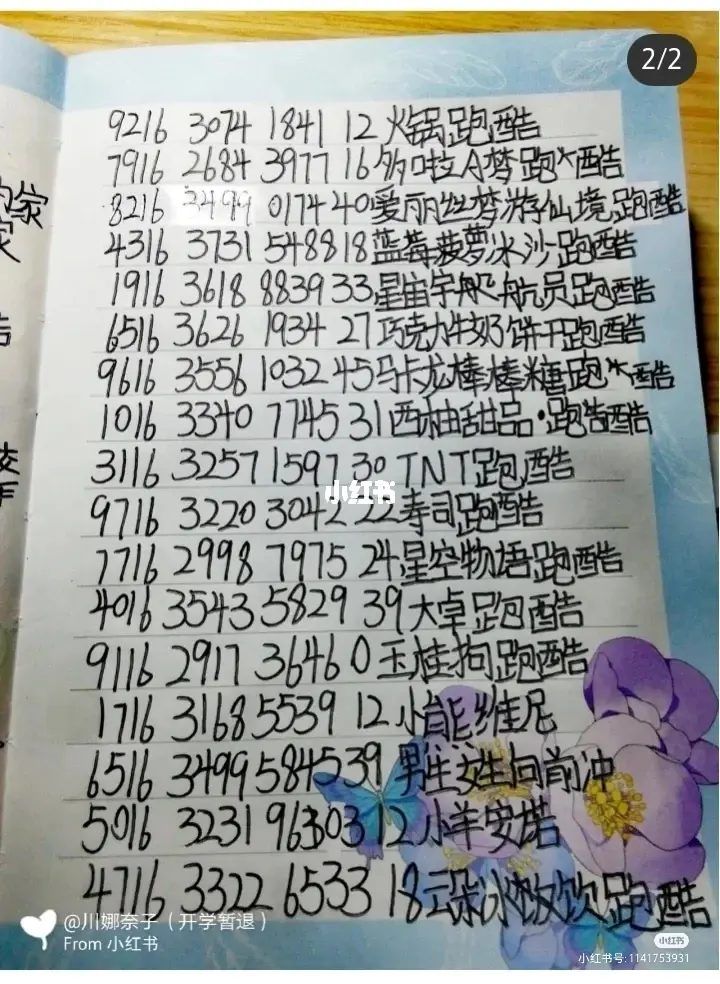 2/2
9216 3074 1841 12 火锅跑酷
7916 2684 3977 16 多啦A梦跑酷
8216 3499 0174 40 爱丽丝梦游仙境跑酷
4316 3731 5488 18 蓝莓菠萝冰沙跑酷
1916 3618 8839 33 星宙宇船航员跑酷
6516 3626 1934 27 巧克力牛奶饼干跑酷
9616 3556 1032 45 马卡龙棒棒糖跑酷
1016 3340 7745 31 西柚甜品·跑酷
3116 3257 1597 30 TNT跑酷
小红书
9716 3220 3042 22 寿司跑酷
7716 2998 7975 24 星空物语跑酷
4016 3543 5829 39 大卓跑酷
9116 2917 3646 0 玉桂狗跑酷
1716 3168 5539 12 小熊维尼
6516 3499 5845 39 男生女生向前冲
5016 3231 96303 12 小羊安诺
4716 3322 6533 18 云朵冰饮跑酷
@川娜奈子（开学暂退）
From 小红书
小红书
小红书号:1141753931
家
家